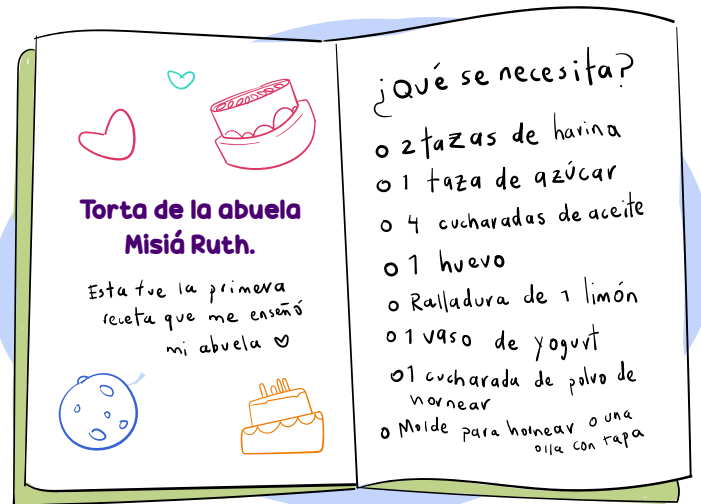 Torta de la abuela
Misiá Ruth.
Esta fue la primera
receta que me enseñó
mi abuela
¿Qué se necesita?
2 tazas de harina
1 taza de azúcar
4 cucharadas de aceite
1 huevo
Ralladura de 1 limón
1 vaso de yogurt
1 cucharada de polvo de
hornear
Molde para hornear o una
olla con tapa